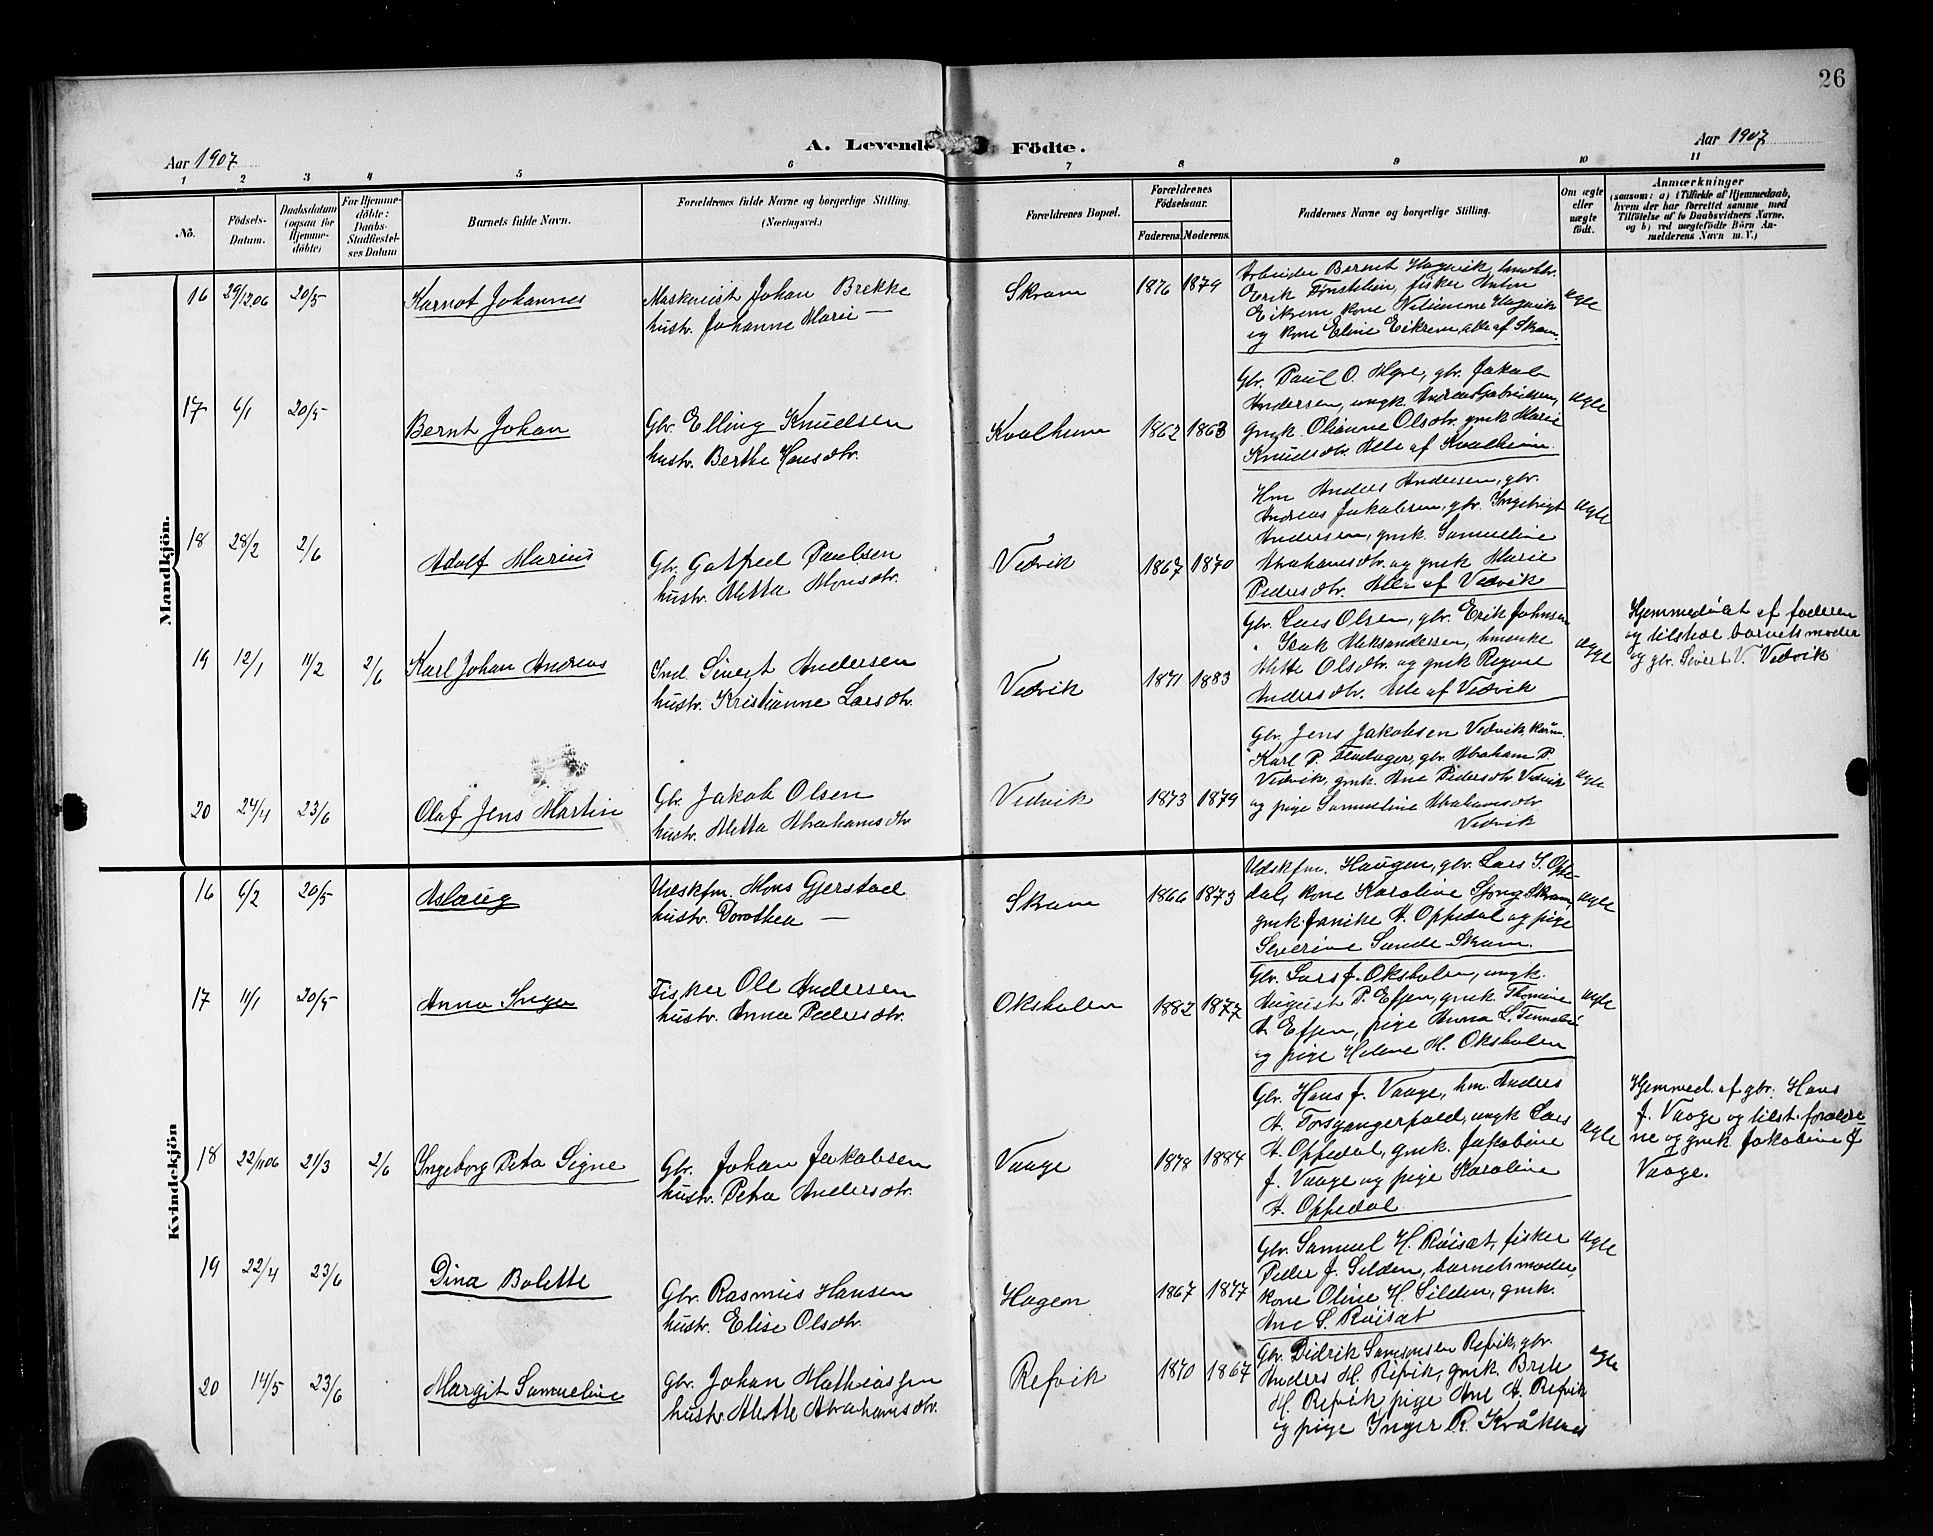 26
Aar 1907
A. Levende Födte.
Aar 1907
1 2 3 4 5 6 7 8 9 10 11
Nô.
Födsels-Datum.
Daabsdatum (ogsaa for Hjemmedöbte)
For Hjemmedöbte: Daabs-Stadfæstelses Datum
Barnets fulde Navn.
Forældrenes fulde Navne og borgerlige Stilling.
(Næringsvei.)
Forældrenes Bopæl.
Forældrenes Födselsaar.
Faderens. Moderens.
Faddernes Navne og borgerlige Stilling.
Om ægte eller uægte födt.
Anmærkninger
(saasom: a) i Tilfælde af Hjemmedaab,
hvem der har forrettet samme med
Tilföielse af to Daabsvidners Navne,
og b) ved uægtefödte Börn Anmelderens Navn m. V.)
Mandkjön.
16 29/12 06 20/5 Karnot Johannes
Maskinist Johan Brekke
hustr. Johanne Marie —
Skram 1876 1879
Arbeider Bernt Hagevik,
Eirik Tönsteien, fisker Anton
Eikrem, kone Hagevik
og kone Eline Eikrem, alle af Skram.
ægte
17 6/1 20/5 Bernt Johan
Gbr. Elling Knudsen
hustr. Berthe Hansdtr.
Kvalheim 1862 1863
Gbr. Paul O. Myre, gbr. Jakob
Andersen, ungk. Andreas Gabrielsen,
gmk. Olianne Olsdtr. gmk Marie
Knudsdtr. Alle af Kvalheim
ægte
18 28/2 2/6 Adolf Marius
Gbr. Gotfred Paulsen
hustr. Metta Monsdtr.
Vedvik 1867 1870
Hm Anders Andersen, gbr.
Andreas Jakobsen, gbr. Ingebrigt
Andersen, gmk. Samueline
Abrahamsdtr. og gmk Marie
Pedersdtr. Alle af Vedvik
ægte
19 12/1 11/2 2/6 Karl Johan Andreas
Ind. Sivert Andersen
hustr. Kristianne Larsdtr.
Vedvik 1871 1883
Gbr. Lars Olsen, gbr. Erik Johnsen
" Isak Aleksandersen, hmenke
Mette Olsdtr. og gmk Regine
Andersdtr. Alle af Vedvik
ægte
Hjemmedöbt af faderen
og tilstede barnets moder
og gbr. Sivert V. Vedvik
20 24/4 23/6 Olaf Jens Martin
Gbr. Jakob Olsen
hustr. Metta Abrahamsdtr.
Vedvik 1873 1879
Gbr. Jens Jakobsen Vedvik,
Karl P. gbr. Abraham P.
Vedvik, gmk. Ane Pedersdtr Vedvik
og pige Samueline Abrahamsdtr.
Vedvik
ægte
Kvindekjön
16 6/2 20/5 Aslaug
Udskfm. Mons Gjerstad
hustr. Dorothea —
Skram 1866 1873
Udskfm. Haugen, gbr. Lars S. Oppedal,
kone Karoline Skram,
gmk. Janike A. Oppedal og pige
Severine Sunde Skram.
ægte
17 11/1 20/5 Anna Inga
Fisker Ole Andersen
hustr. Anna Pedersdtr.
Oksholen 1882 1877
Gbr. Lars J. Oksholen, ungk.
August P. Efjen, gmk. Thomine
A. Efjen, pige Anna L.
og pige Helene M. Oksholen
ægte
18 22/11 06 21/3 2/6 Ingeborg Peta Signe
Gbr. Johan Jakobsen
hustr. Petra Andersdtr.
Vaage 1878 1884
Gbr. Hans J. Vaage, hm. Anders
A. Torsgangerfald, ungk Lars
A. Oppedal, gmk. Jakobine
J. Vaage og pige Karoline
A. Oppedal.
ægte
Hjemmed. af gbr. Hans
J. Vaage og tilst. forældrene
og gmk. Jakobine J
Vaage.
19 22/4 23/6 Dina Bolette
Gbr. Rasmus Hansen
hustr. Elise Olsdtr.
Hagen 1867 1877
Gbr. Samuel H. Röisæt, fisker
Peder J. Silden, barnets moder,
kone Oline H. Silden, gmk.
Ane S. Röisæt
ægte
20 14/5 23/6 Margit Samueline
Gbr. Johan Mathiassen
hustr. Mette Abrahamsdtr.
Refvik 1870 1867
Gbr. Didrik Samsonsen Refvik, gbr.
Anders M. Refvik, gmk. Brite
M. Refvik, pige Ane A. Refvik
og pige Inger R. Kråkenes
ægte